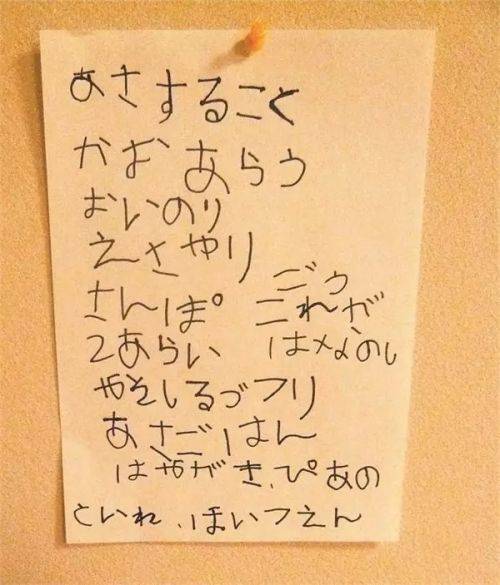 あさすること
かおあらう
おいのり
えさやり
さんぽ
2あらい
これが
はなのし
ごう
みそしるづくり
あさごはん
はやがき、ぴあの
といれ、ほいくえん